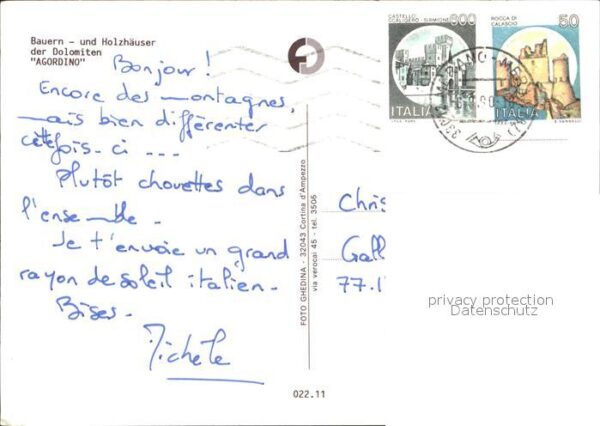 Bauern - und Holzhäuser
der Dolomiten
"AGORDINO"
Bonjour !
Encore des montagnes,
mais bien différentes
cette fois-ci ...
Plutôt chouettes dans
l'ensemble.
Je t'envoie un grand
rayon de soleil italien.
Bises.
Michele
FOTO GHEDINA - 32043 Cortina d'Ampezzo
via verocai 45 - tel. 3506
022.11
CASTELLO
SCALIGERO - SIRMIONE
600
ITALIA
ROCCA DI
CALASCIO
50
ITALIA
Chris
Gall
77.1
privacy protection
Datenschutz